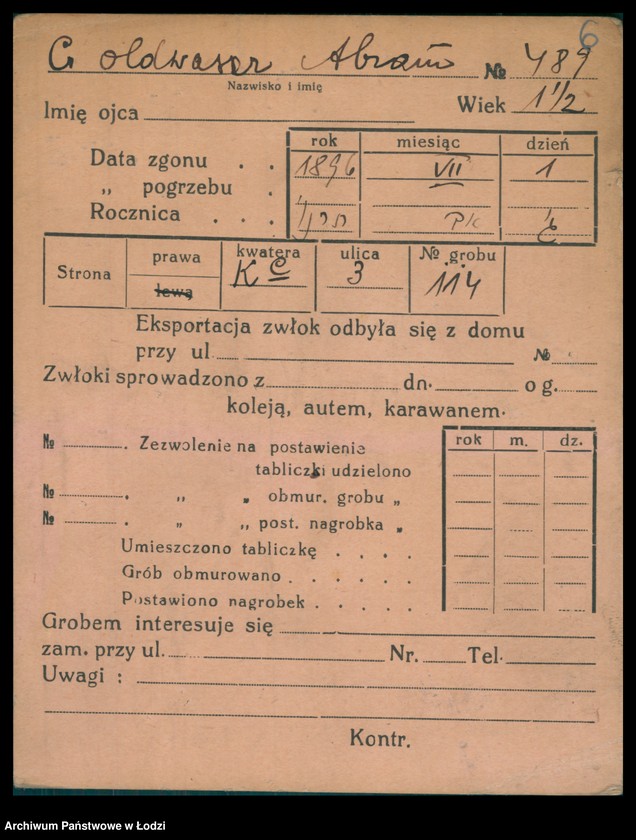 6
Goldwaser Abram № 489
Nazwisko i imię
Imię ojca Wiek 1 1/2
rok miesiąc dzień
Data zgonu . . 1896 VII 1
„ pogrzebu .
Rocznica . . .
Strona prawa kwatera ulica № grobu
lewa K C 3 114
Eksportacja zwłok odbyła się z domu
przy ul. №
Zwłoki sprowadzono z dn. o g.
koleją, autem, karawanem.
rok m. dz.
№ . Zezwolenie na postawienie
tabliczki udzielono
№ . „ „ obmur. grobu „
№ . „ „ post. nagrobka „
Umieszczono tabliczkę . . . .
Grób obmurowano . . . . .
Postawiono nagrobek . . . . .
Grobem interesuje się
zam. przy ul. Nr. Tel.
Uwagi :
Kontr.
Archiwum Państwowe w Łodzi